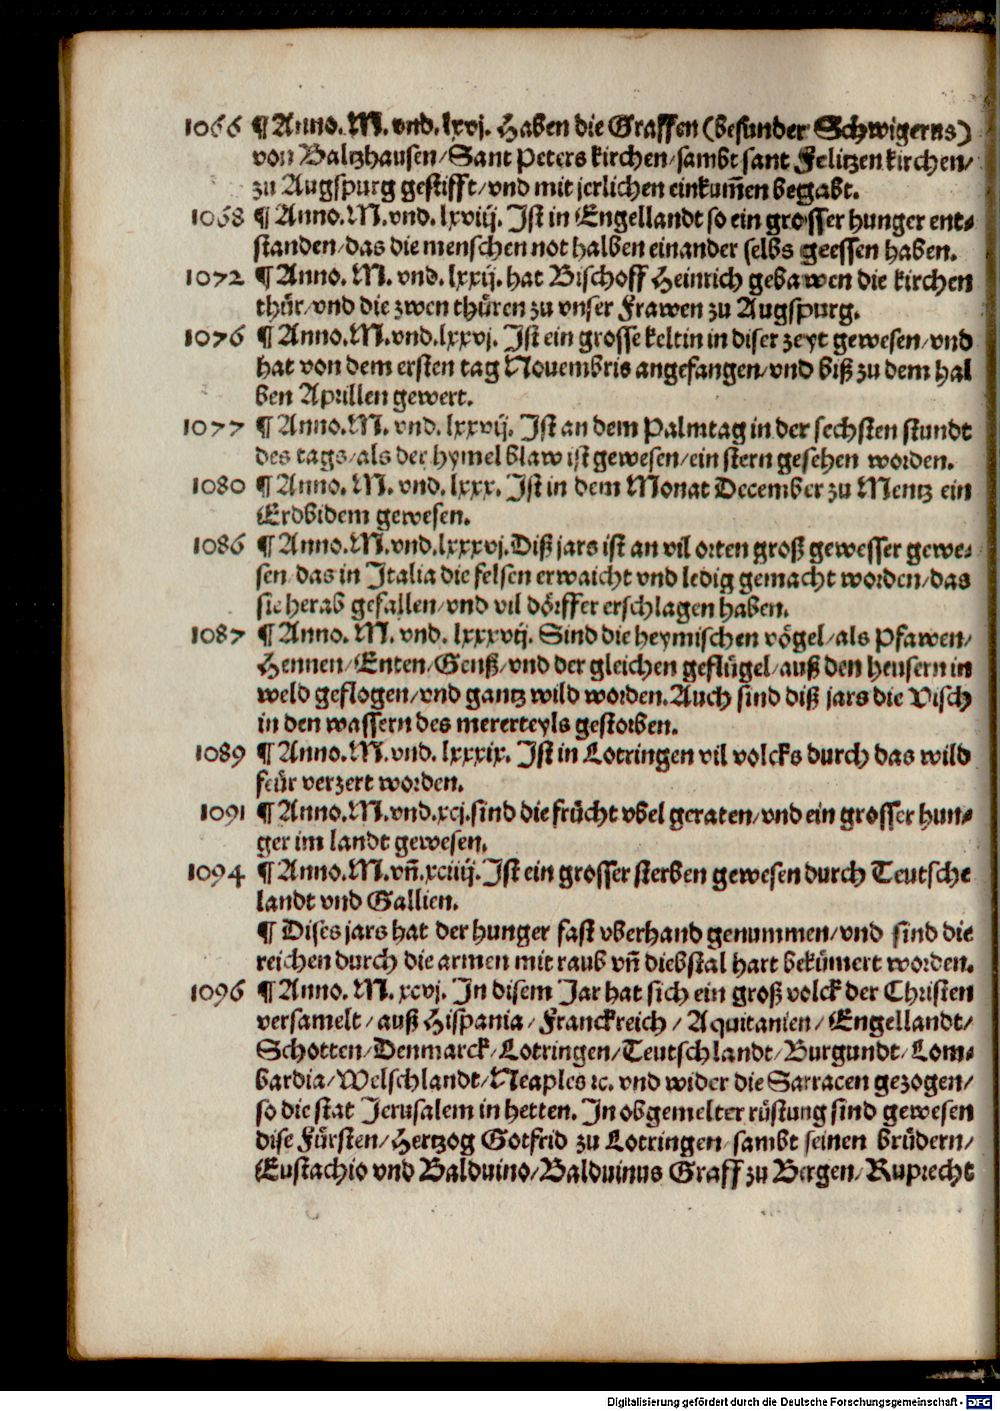 1066 ¶ Anno. M. vnd. lxvj. Haben die Graffen (besunder Schwigerus)
von Baltzhausen / Sant Peters kirchen / sambt sant Felitzen kirchen /
zu Augspurg gestifft / vnd mit jerlichen einkum̄en begabt.
1068 ¶ Anno. M. vnd. lxviij. Ist in Engellandt so ein grosser hunger ent⸗
standen / das die menschen not halben einander selbs geessen haben.
1072 ¶ Anno. M. vnd. lxxij. hat Bischoff Heinrich gebawen die kirchen
thür / vnd die zwen thüren zu vnser Frawen zu Augspurg.
1076 ¶ Anno. M. vnd. lxxvj. Ist ein grosse keltin in diser zeyt gewesen / vnd
hat von dem ersten tag Nouembris angefangen / vnd biß zu dem hal
ben Aprillen gewert.
1077 ¶ Anno. M. vnd. lxxvij. Ist an dem Palmtag in der sechsten stundt
des tags / als der hymel blaw ist gewesen / ein stern gesehen worden.
1080 ¶ Anno. M. vnd. lxxx. Ist in dem Monat December zu Mentz ein
Erdbidem gewesen.
1086 ¶ Anno. M. vnd. lxxxvj. Diß jars ist an vil orten groß gewesser gewe⸗
sen / das in Italia die felsen erwaicht vnd ledig gemacht worden / das
sie herab gefallen / vnd vil dörffer erschlagen haben.
1087 ¶ Anno. M. vnd. lxxxvij. Sind die heymischen vögel / als Pfawen /
Hennen / Enten / Genß / vnd der gleichen geflügel / auß den heusern in
weld geflogen / vnd gantz wild worden. Auch sind diß jars die Visch
in den wassern des mererteyls gestorben.
1089 ¶ Anno. M. vnd. lxxxix. Ist in Lotringen vil volcks durch das wild
feür verzert worden.
1091 ¶ Anno. M. vnd. xcj. sind die frücht vbel geraten / vnd ein grosser hun⸗
ger im landt gewesen.
1094 ¶ Anno. M. vn̄. xciiij. Ist ein grosser sterben gewesen durch Teutsche
landt vnd Gallien.
¶ Dises jars hat der hunger fast vberhand genummen / vnd sind die
reichen durch die armen mit raub vn̄ diebstal hart bekümert worden.
1096 ¶ Anno. M. xcvj. In disem Jar hat sich ein groß volck der Christen
versamelt / auß Hispania / Franckreich / Aquitanien / Engellandt /
Schotten / Denmarck / Lotringen / Teutschlandt / Burgundt / Lom⸗
bardia / Welschlandt / Neaples ꝛc. vnd wider die Sarracen gezogen /
so die stat Jerusalem in hetten. In obgemelter rüstung sind gewesen
dise Fürsten / Hertzog Gotfrid zu Lotringen / sambt seinen brüdern /
Eustachio vnd Balduino / Balduinus Graff zu Bergen / Ruprecht
Digitalisierung gefördert durch die Deutsche Forschungsgemeinschaft - DFG